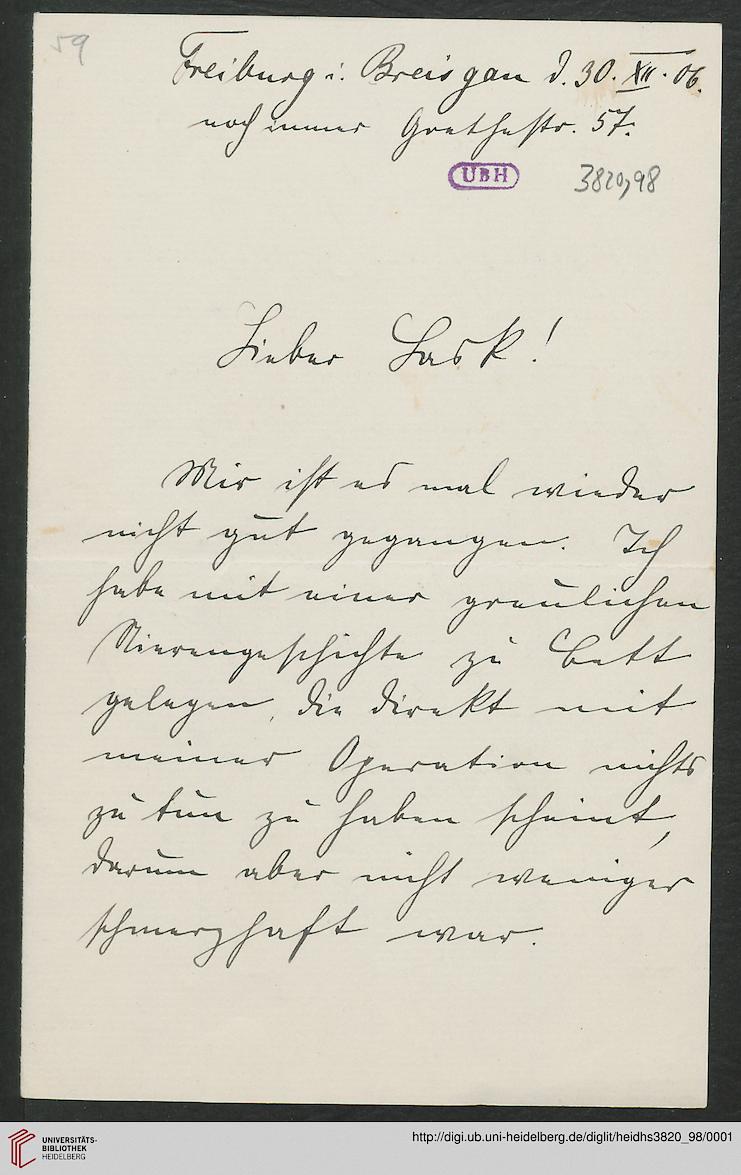 59
Freiburg i. Breisgau d. 30. XII. 06.
noch immer Goethestr. 57.
UBH
3820,98
Lieber Lask!
Mir ist es mal wieder
nicht gut gegangen. Ich
habe mit einer greulichen
Nierengeschichte zu Bett
gelegen, die direkt mit
meiner Operation nichts
zu tun zu haben scheint,
darum aber nicht weniger
schmerzhaft war.
UNIVERSITÄTS-
BIBLIOTHEK
HEIDELBERG
http://digi.ub.uni-heidelberg.de/diglit/heidhs3820_98/0001